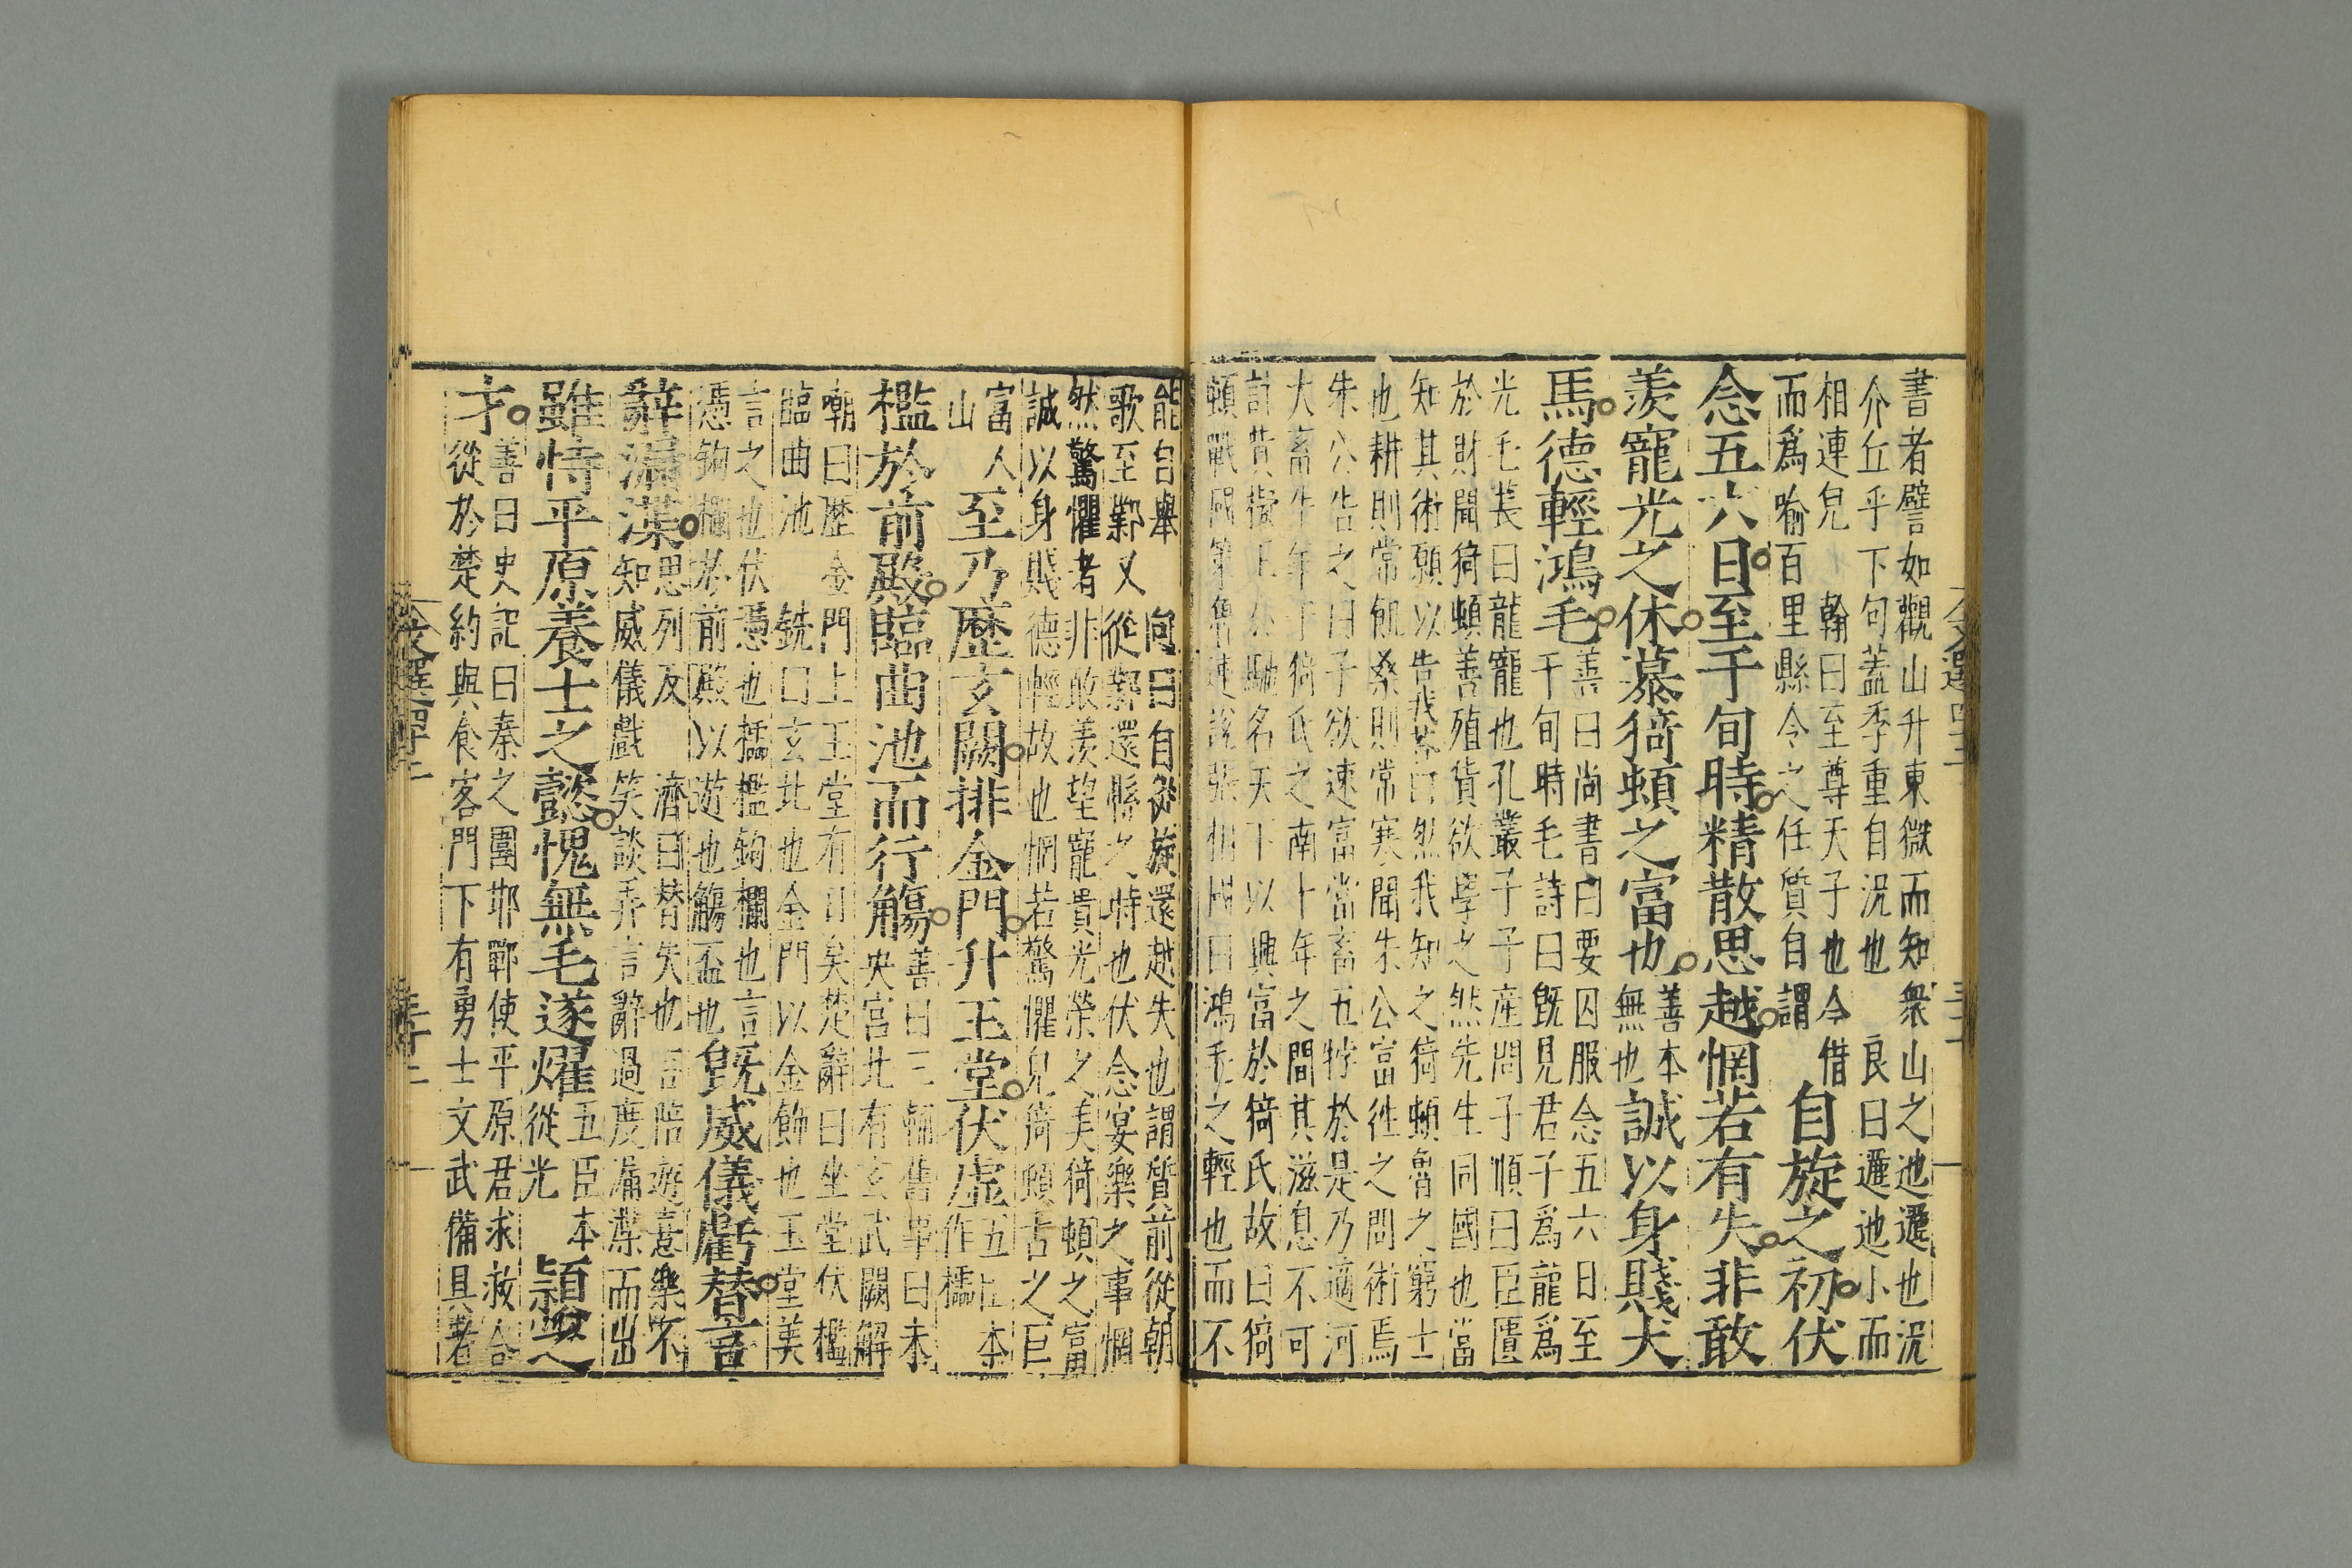 書者譬如觀山升東㣲而知衆山之迆邐也況
介丘乎下句蓋季重自況也　良曰邐迆小而
相連皃　翰曰至尊天子也今借
而爲喻百里縣令之任質自謂
自旋之初伏
念五六日至于旬時精散思越惘若有失非敢
羨寵光之休慕猗頓之富也
善本
無也
誠以身賤犬
馬德輕鴻毛
善曰尚書曰要囚服念五六日至
于旬時毛詩曰旣見君子爲龍爲
光毛萇曰龍寵也孔叢子子産問子順曰臣匱
於財聞猗頓善殖貨欲學之然先生同國也當
知其術願以告我荅曰然我知之猗頓魯之窮士
也耕則常飢桑則常寒聞朱公富往問術焉
朱公告之曰子欲速富當畜五牸於是乃適河
大畜牛羊于猗氏之南十年之間其滋息不可
計貲擬王公馳名天下以興富於猗氏故曰猗
頓戰國策魯連說張相國曰鴻毛之輕也而不
能自舉　向曰自從旋還越失也謂質前從朝
歌至鄴又從鄴還縣之時也伏念宴樂之事惘
然驚懼者非敢羨望寵貴光榮之美猗頓之富
誠以身賤德輕故也惘若驚懼皃猗頓古之巨
富人
山
至乃歷玄闕排金門升玉堂伏虛
五臣本
作櫺
檻於前殿臨曲池而行觴
善曰三輔舊事曰未
央宮北有玄武闕解
嘲曰歷金門上玉堂有日矣楚辭曰坐堂伏檻
臨曲池　銑曰玄北也金門以金飾也玉堂美
言之也伏憑也櫺檻鉤欄也言
憑鉤欄於前殿以遊也觴盃也
旣威儀虧替言
辭漏渫
思列反　濟曰替失也言陪遊意樂不
知威儀戲笑談弄言辭過度漏渫而出
雖恃平原養士之懿愧無毛遂燿
五臣本
從光
穎之
才
善曰史記曰秦之圍邯鄲使平原君求救合
從於楚約與食客門下有勇士文武備具者